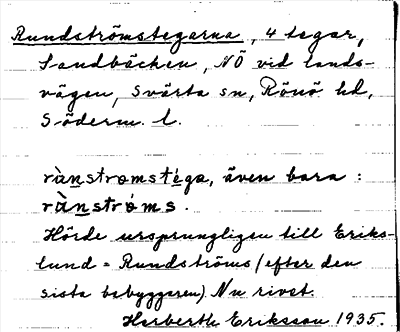 Rundströmstegarna, 4 tegar,
Sandbäcken, NÖ vid lands-
vägen, Svärta sn, Rönö hd,
Söderm. l.
rànstromstéga, även bara:
rànstróms.
Hörde ursprungligen till Eriks-
lund = Rundströms (efter den
sista bebyggaren). Nu rivet.
Herberth Eriksson 1935.